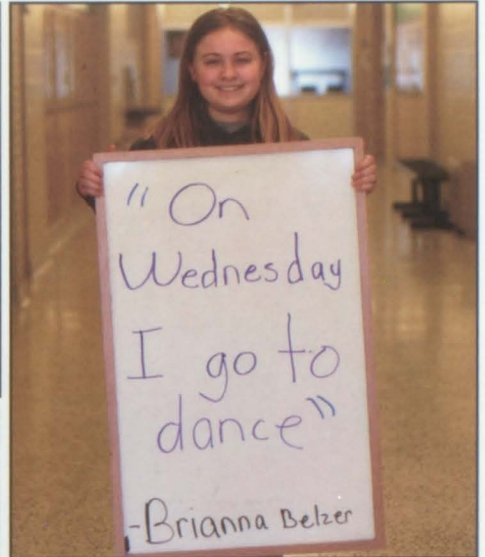 "On
Wednesday
I go to
dance"
-Brianna Belzer